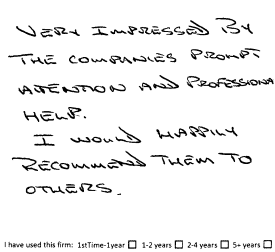 VERY IMPRESSED BY
THE COMPANIES PROMPT
ATENTION AND PROFESSIONA
HELP.
I WOULD HAPPILY
RECOMMEND THEM TO
OTHERS.
I have used this firm: 1stTime-1year ☐ 1-2 years ☐ 2-4 years ☐ 5+ years ☐